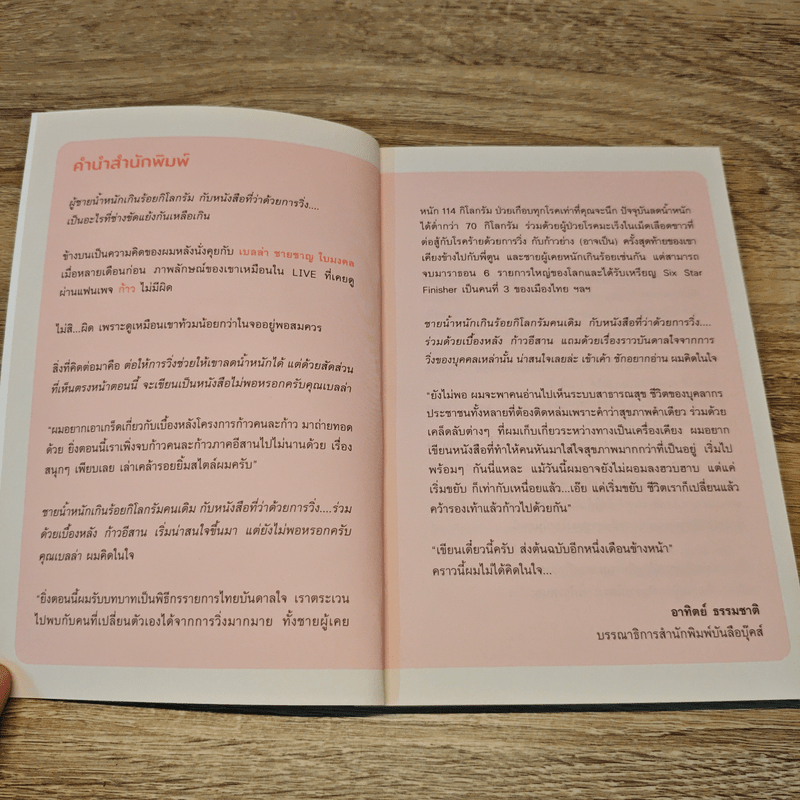 คำนำสำนักพิมพ์
ผู้ชายน้ำหนักเกินร้อยกิโลกรัม กับหนังสือที่ว่าด้วยการวิ่ง....
เป็นอะไรที่ช่างขัดแย้งกันเหลือเกิน
ข้างบนเป็นความคิดของผมหลังนั่งคุยกับ เบลล่า ชายชาญ ใบมงคล
เมื่อหลายเดือนก่อน ภาพลักษณ์ของเขาเหมือนใน LIVE ที่เคยดู
ผ่านแฟนเพจ ก้าว ไม่มีผิด
ไม่สิ...ผิด เพราะดูเหมือนเขาท้วมน้อยกว่าในจออยู่พอสมควร
สิ่งที่คิดต่อมาคือ ต่อให้การวิ่งช่วยให้เขาลดน้ำหนักได้ แต่ด้วยสัดส่วน
ที่เห็นตรงหน้าตอนนี้ จะเขียนเป็นหนังสือไม่พอหรอกครับคุณเบลล่า
“ผมอยากเอาเกร็ดเกี่ยวกับเบื้องหลังโครงการก้าวคนละก้าว มาถ่ายทอด
ด้วย ยิ่งตอนนี้เราเพิ่งจบก้าวคนละก้าวภาคอีสานไปไม่นานด้วย เรื่อง
สนุกๆ เพียบเลย เล่าเคล้ารอยยิ้มสไตล์ผมครับ”
ชายน้ำหนักเกินร้อยกิโลกรัมคนเดิม กับหนังสือที่ว่าด้วยการวิ่ง....ร่วม
ด้วยเบื้องหลัง ก้าวอีสาน เริ่มน่าสนใจขึ้นมา แต่ยังไม่พอหรอกครับ
คุณเบลล่า ผมคิดในใจ
“ยิ่งตอนนี้ผมรับบทบาทเป็นพิธีกรรายการไทยบันดาลใจ เราตระเวน
ไปพบกับคนที่เปลี่ยนตัวเองได้จากการวิ่งมากมาย ทั้งชายผู้เคย
หนัก 114 กิโลกรัม ป่วยเกือบทุกโรคเท่าที่คุณจะนึก ปัจจุบันลดน้ำหนัก
ได้ต่ำกว่า 70 กิโลกรัม ร่วมด้วยผู้ป่วยโรคมะเร็งในเม็ดเลือดขาวที่
ต่อสู้กับโรคร้ายด้วยการวิ่ง กับก้าวย่าง (อาจเป็น) ครั้งสุดท้ายของเขา
เคียงข้างไปกับพี่ตูน และชายผู้เคยหนักเกินร้อยเช่นกัน แต่สามารถ
จบมาราธอน 6 รายการใหญ่ของโลกและได้เหรียญ Six Star
Finisher เป็นคนที่ 3 ของเมืองไทย ฯลฯ
ชายน้ำหนักเกินร้อยกิโลกรัมคนเดิม กับหนังสือที่ว่าด้วยการวิ่ง....
ร่วมด้วยเบื้องหลัง ก้าวอีสาน แถมด้วยเรื่องราวบันดาลใจจากการ
วิ่งของบุคคลเหล่านั้น น่าสนใจเลยล่ะ เข้าเค้า ชักอยากอ่าน ผมคิดในใจ
“ยังไม่พอ ผมจะพาคนอ่านไปเห็นระบบสาธารณสุข ชีวิตของบุคลากร
ประชาชนทั้งหลายที่ต้องติดหล่มเพราะคำว่าสุขภาพคำเดียว ร่วมด้วย
เคล็ดลับต่างๆ ที่ผมเก็บเกี่ยวระหว่างทางเป็นเครื่องเคียง ผมอยาก
เขียนหนังสือที่ทำให้คนหันมาใส่ใจสุขภาพมากกว่าที่เป็นอยู่ เริ่มไป
พร้อมๆ กันนี่แหละ แม้วันนี้ผมอาจยังไม่ผอมลงฮวบฮาบ แต่แค่
เริ่มขยับ ก็เท่ากับเหนื่อยแล้ว...เอ๊ย แค่เริ่มขยับ ชีวิตเราก็เปลี่ยนแล้ว
คว้ารองเท้าแล้วก้าวไปด้วยกัน”
“เขียนเดี๋ยวนี้ครับ ส่งต้นฉบับอีกหนึ่งเดือนข้างหน้า”
คราวนี้ผมไม่ได้คิดในใจ...
อาทิตย์ ธรรมชาติ
บรรณาธิการสำนักพิมพ์บันลือบุ๊คส์